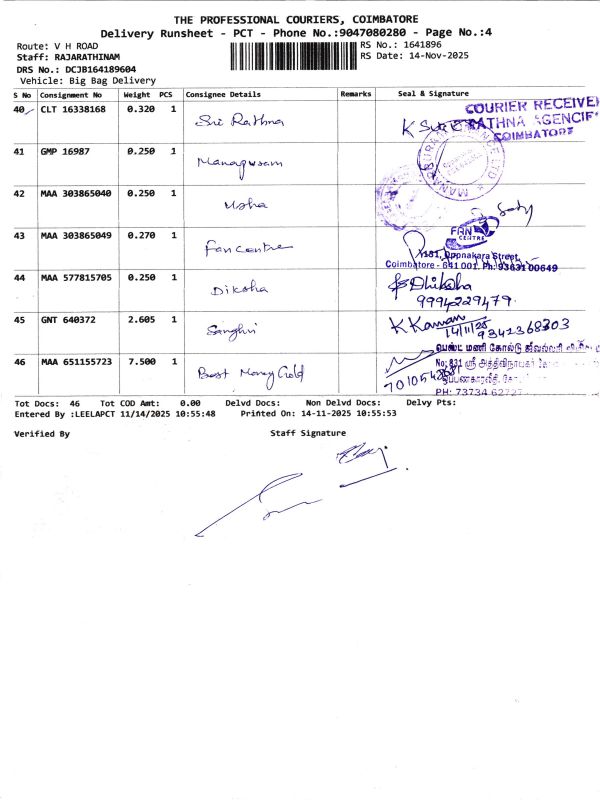 THE PROFESSIONAL COURIERS, COIMBATORE
Delivery Runsheet - PCT - Phone No.:9047080280 - Page No.:4
Route: V H ROAD
RS No.: 1641896
Staff: RAJARATHINAM
RS Date: 14-Nov-2025
DRS No.: DCJB164189604
Vehicle: Big Bag Delivery
S No Consignment No Weight PCS Consignee Details Remarks Seal & Signature
40 CLT 16338168 0.320 1 Sri Rathna
COURIER RECEIVE
RATHNA AGENCIE
COIMBATORE
41 GMP 16987 0.250 1 Manappuram
42 MAA 303865040 0.250 1 Usha
43 MAA 303865049 0.270 1 Fan centre
FAN
CENTRE
Oppnakara Street,
Coimbatore - 641 001. Ph: 93631 00649
44 MAA 577815705 0.250 1 Diksha
Dhiksha
9994229479
45 GNT 640372 2.605 1 Sanghvi
K Kannan
14/11/25
9342368303
46 MAA 651155723 7.500 1 Best Money Gold
பெஸ்ட் மணி கோல்டு ஜுவல்லரி
No: 831 ஸ்ரீ
PH: 73734 62727
Tot Docs: 46 Tot COD Amt: 0.00 Delvd Docs: Non Delvd Docs: Delvy Pts:
Entered By :LEELAPCT 11/14/2025 10:55:48 Printed On: 14-11-2025 10:55:53
Verified By Staff Signature